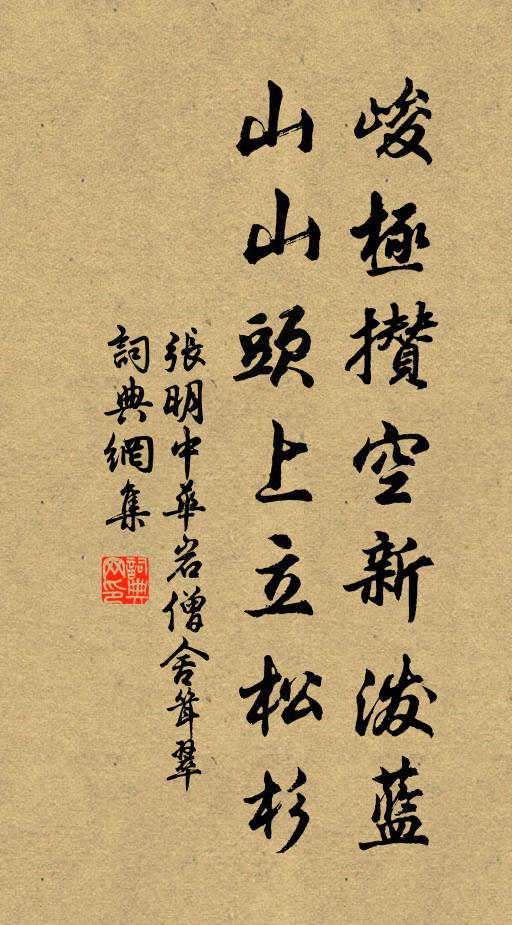 峻極攢空新潑藍
山山頭上立松杉
張明中華岩僧舍聳翠
詞典網集
詞典網印